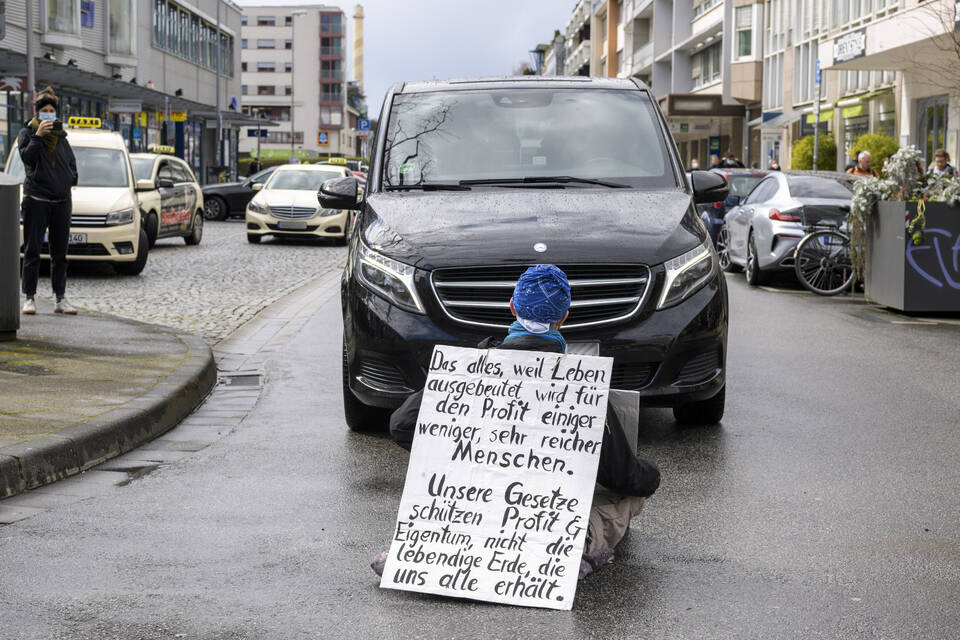 Das alles, weil Leben
ausgebeutet wird für
den Profit einiger
weniger, sehr reicher
Menschen.
Unsere Gesetze
schützen Profit &
Eigentum, nicht die
lebendige Erde, die
uns alle erhält.